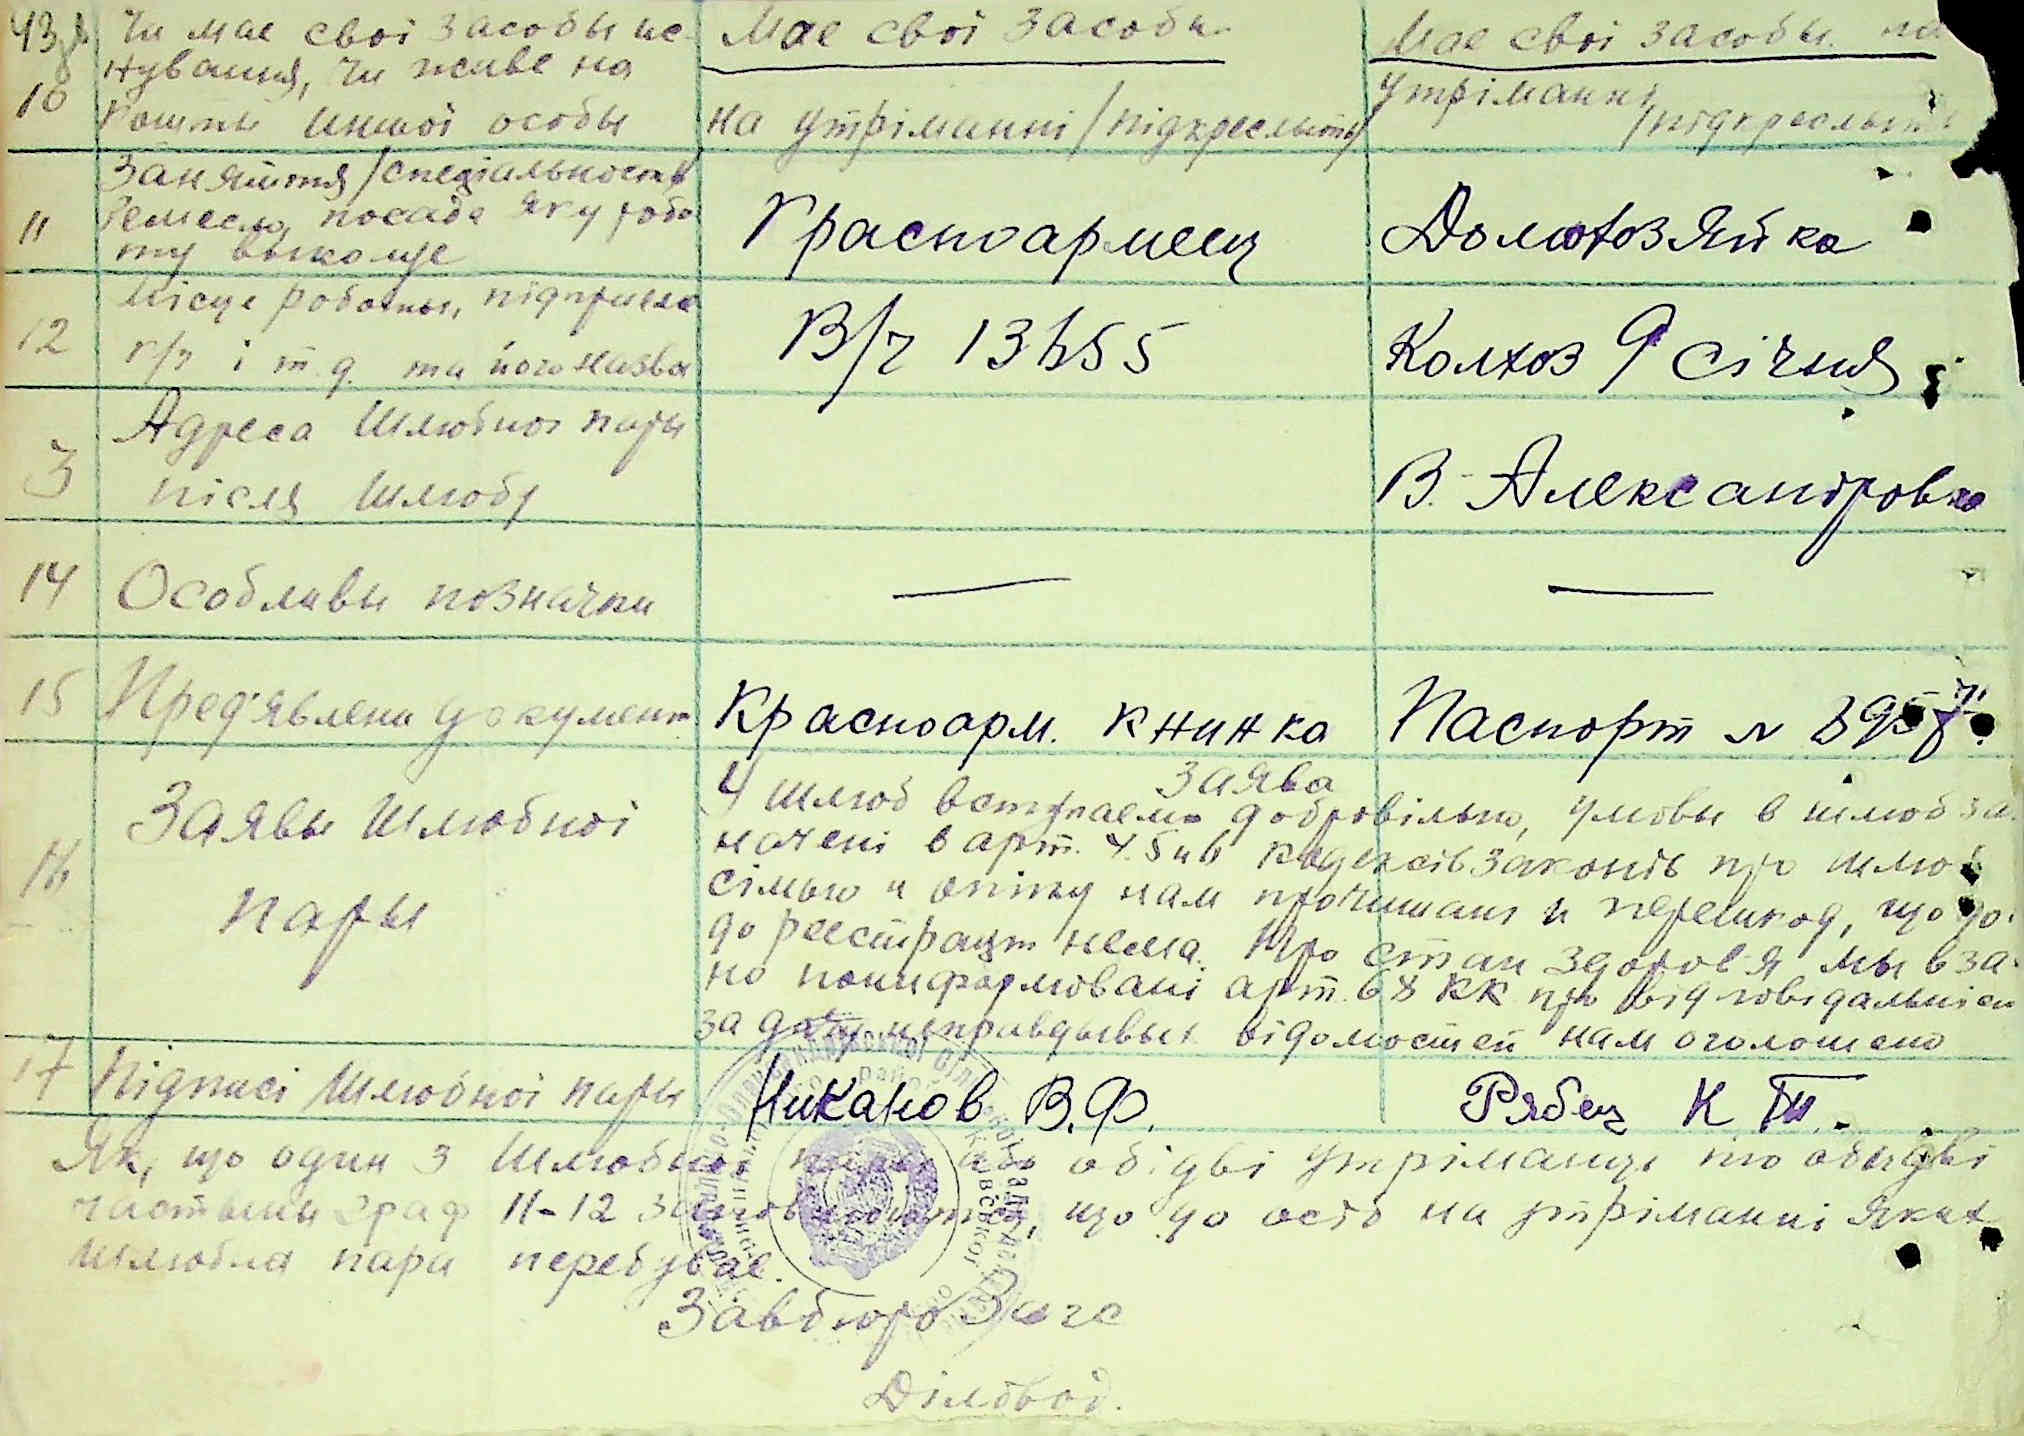 10 Чи мае своі засобы ис-
нування, чи живе на
кошты иншоі особы
Мае своі засобы.
на утріманні/підкреслыты
Мае своі засобы. на
утріманні
/підкреслыты
11 Заняття/спеціальность
Ремесло, посада яку робо
ту выконуе
Красноармеец
Домохозяйка
12 Місце роботы, підприем
г/р і т.д. та його назва
В/ч 13655
Колхоз 9 січня
3 Адреса Шлюбноі пары
після Шлюбу
В. Александровка
14 Особливы позначки
15 Пред'явлени документ
Красноарм. книжка
Паспорт N
16 Заявы Шлюбноі
пары
заява
У шлюб вступаемо добровільно, умовы в шлюб за
начені в арт. 4.5 и 6 кодексів законів про шлю
сімью и опіку нам прочитані и перешкод, що до
до реестраціі нема. Про стан здоров'я мы вза
но поинформовані арт. 68 КК про відповідальніст
за дачу неправдывых відомостей нам оголошено
17 Підписі Шлюбноі пары
Никанов В.Ф.
Рябец К Т.
Як, що один з Шлюбноі пары або обідві утріманці то обидві
частыны граф 11-12 заповнюються, що до осіб на утріманні яких
шлюбна пара перебувае.
Завбюро Загс
Діловод.